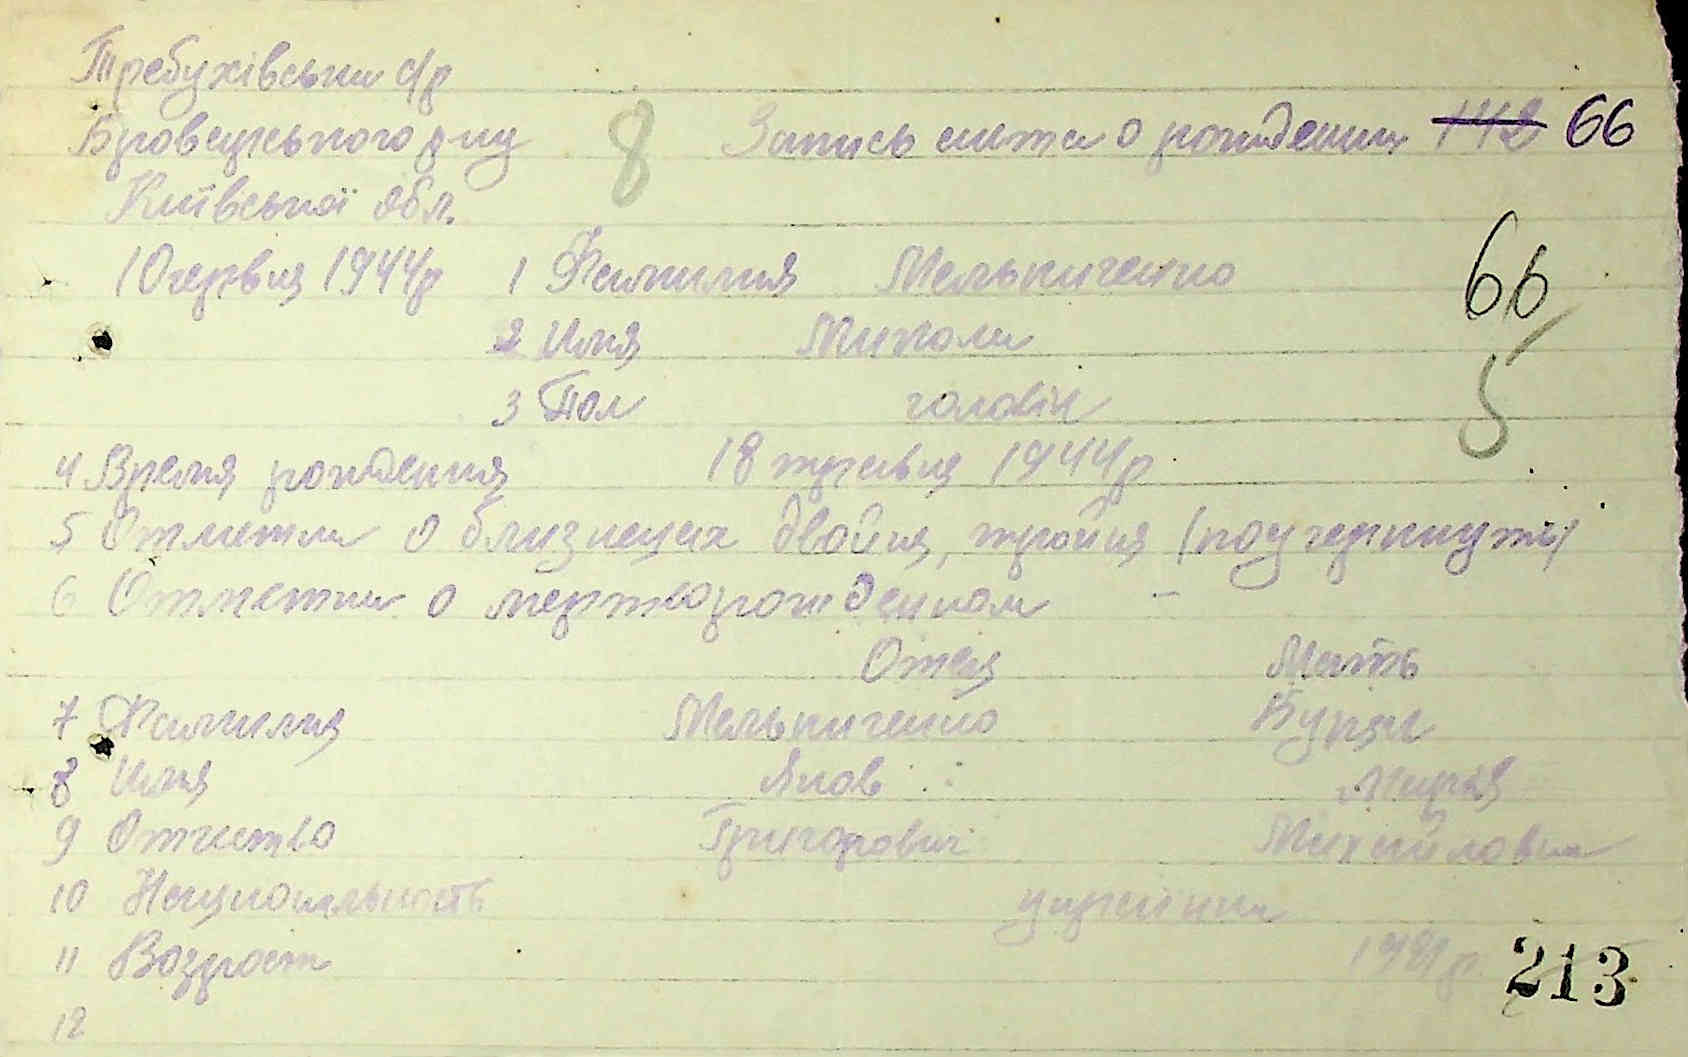 Требухівська с/р
Броварського р-ну 8 Запись акта о рождении 142 66
Київської обл.
10 червня 1944 р 1 Фамилия Мельниченко 66
2 Имя Микола 5
3 Пол чоловік
4 Время рождения 18 травня 1944 р.
5 Отметка о близнецах двойня, тройня (подчеркнути)
6 Отметка о мертворожденном -
Отец Мать
7 Фамилия Мельниченко
8 Имя Яков Марія
9 Отчество Григорович Михайловна
10 Национальность українка
11 Возраст р 213
12